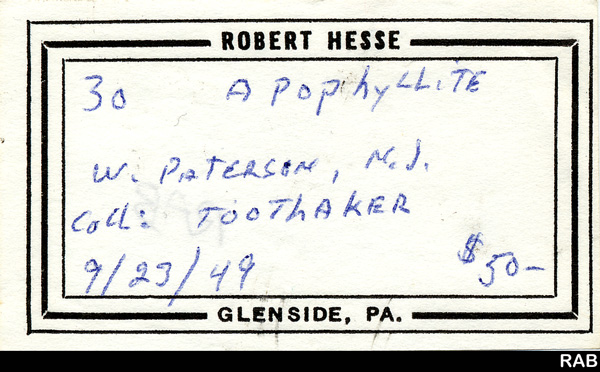 ROBERT HESSE
30 APophyLLiTE
W. PATERSON, N.J.
Coll: TOOThAKER
9/23/49 $50-
GLENSIDE, PA.
RAB